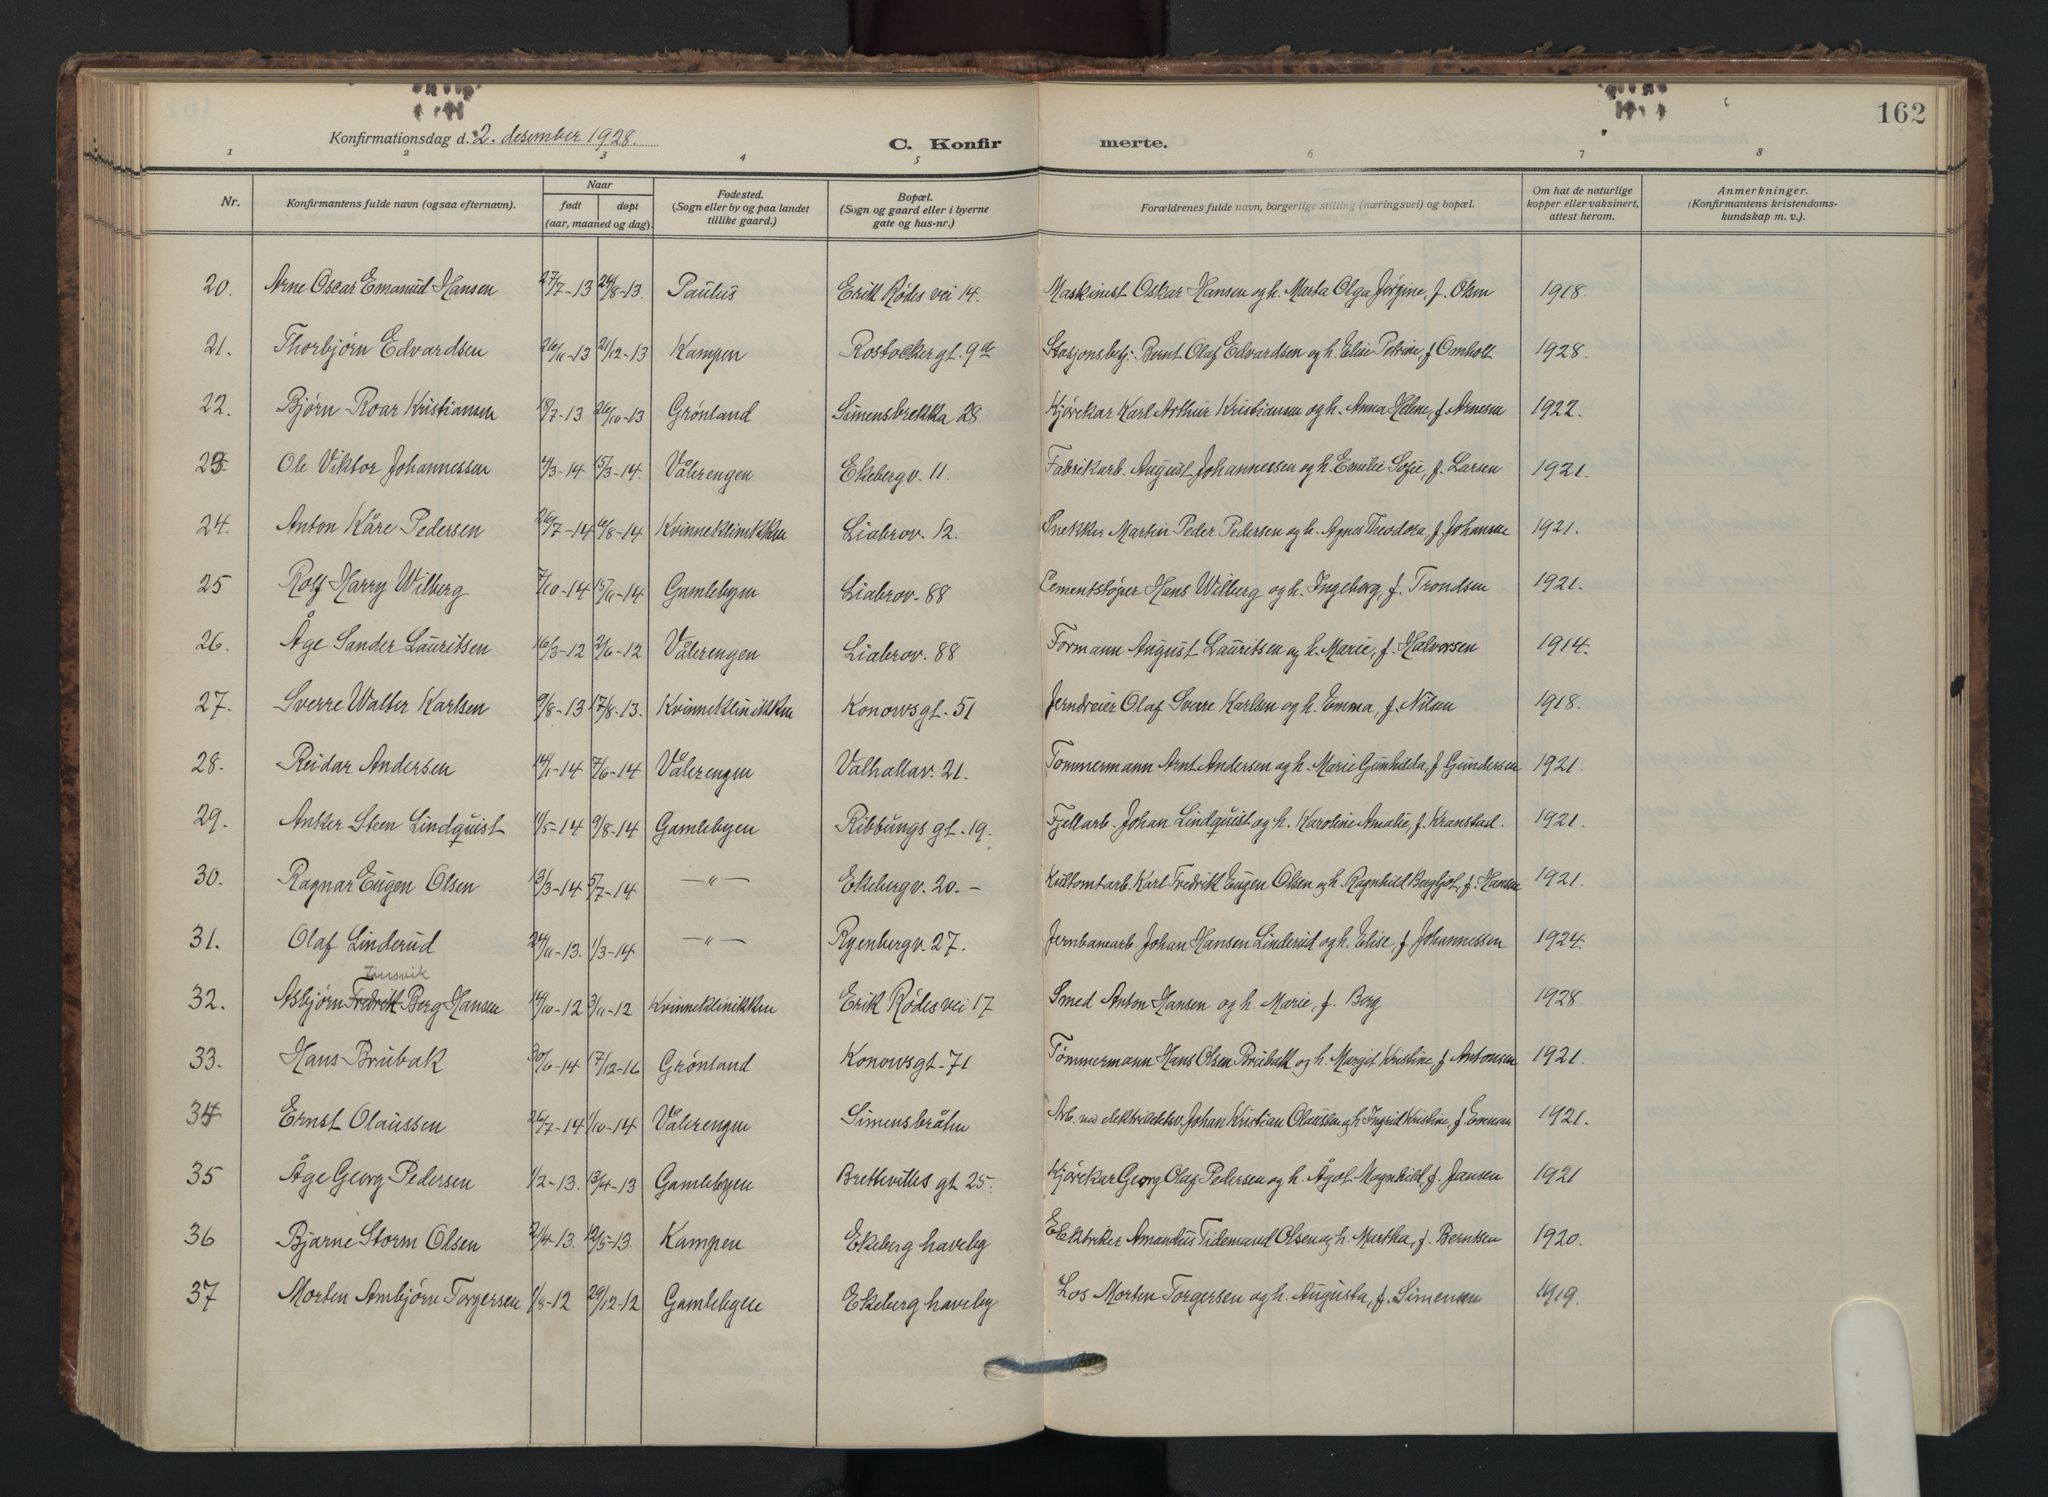 162
Konfirmationsdag d. 2. desember 1928. C. Konfirmerte.
1 2 3 4 5 6 7 8
Nr. Konfirmantens fulde navn (ogsaa efternavn). Naar født døpt (aar, maaned og dag). Fødested. (Sogn eller by og paa landet tillike gaard.) Bopæl. (Sogn og gaard eller i byerne gate og hus-nr.) Forældrenes fulde navn, borgerlige stilling (næringsvei) og bopæl. Om hat de naturlige kopper eller vaksinert, attest herom. Anmerkninger. (Konfirmantens kristendomskundskap m. v.).
20. Arne Oscar Emanuel Hansen 27/7-13 24/8-13. Paulus Erik Rødes vei 14. Maskinest Oskar Hansen og h. Marta Olga Jørgine, f. Olsen 1918.
21. Thorbjørn Edvardsen 26/11-13 21/12-13 Kampen Rostockergt. 9 Stasjonsbetj. Bernt Olaf Edvardsen og h. Elise Petrine, f Omholt 1928.
22. Bjørn Roar Kristiansen 18/7-13 26/10-13 Grønland Simensbrekka 28. Kjørekar Karl Arthur Kristiansen og h. Anna Helene, f. Arnesen 1922.
23. Ole Viktor Johannessen 4/3-14 15/3-14. Vålerengen Ekebergv. 11. Fabrikarb. August Johannessen og h. Emilie Sofie, f. Larsen 1921.
24. Anton Kåre Pedersen 26/7-14 6/8-14 Kvinneklinikken Liabrov. 12. Snekker Martin Peder Pedersen og h. Agnes Theodora, f. Johansen 1921.
25 Rolf Harry Wilberg 7/10-14 15/11-14 Gamlebyen Liabrov. 88 Cementstøper Hans Wilberg og h. Ingeborg, f. Trondsen 1921.
26. Åge Sander Lauritsen 16/3-12 2/6-12 Vålerengen Liabrov. 88 Formann August Lauritsen og h. Marie, f. Halvorsen 1914.
27. Sverre Walter Karlsen 9/8-13 17/8-13. Kvinneklinikken Konowsgt. 51 Jerndreier Olaf Sverre Karlsen og h. Emma, f. Nilsen 1918.
28. Reidar Andersen 14/1-14 7/6-14 Vålerengen Valhallav. 21. Tømmermann Arnt Andersen og h. Marie Gunhilda, f Gundersen 1921.
29. Anker Steen Lindquist 11/5-14 9/8-14 Gamlebyen Ribbungs gt. 19. Fjellarb. Johan Lindquist og h. Karoline Amalie, f. Kranstad. 1921.
30. Ragnar Eugen Olsen 13/3-14 5/7-14 —"— Ekebergv. 20.- Kulltomtarb. Karl Fredrik Eugen Olsen og h. Ragnhild Bergljot, f. Hansen 1921.
31. Olaf Linderud 24/11-13. 1/3-14 —"— Ryenbergv. 27. Jernbanearb. Johan Hansen Linderud og h. Elise, f Johannessen 1924.
32. Asbjørn Fredrik Berg Hansen 14/10-12 3/11-12 Kvinneklinikken Erik Rødes vei 17 Smed Anton Hansen og h. Marie, f. Berg 1928.
33. Hans Brubak 30/6-14 17/12-16 Grønland Konowsgt. 71 Tømmermann Hans Olsen Brubakk og h. Margit Kristine, f Antonsen 1921.
34 Ernst Olaussen 26/7-14 1/10-14 Vålerengen Simensbråten Arb. ved elektrisitetsv. Johan Kristian Olaussen og h Ingrid Kristine, f Evensen 1921.
35 Åge Georg Pedersen 1/2-13. 13/4-13 Gamlebyen Brettevilles gt 25. Kjørekar Georg Olaf Pedersen og h. Ågot Magnhild, f. Jansen 1921
36 Bjarne Storm Olsen 21/4-13. 12/5-13. Kampen Ekeberg haveby Elektriker Amandus Tidemand Olsen og h. Martha, f. Berntsen 1920.
37 Morten Ambjørn Torgersen 1/8-12 29/12-12 Gamlebyen Ekeberg haveby Los Morten Torgersen og h. Augusta, f. Simensen 1919.